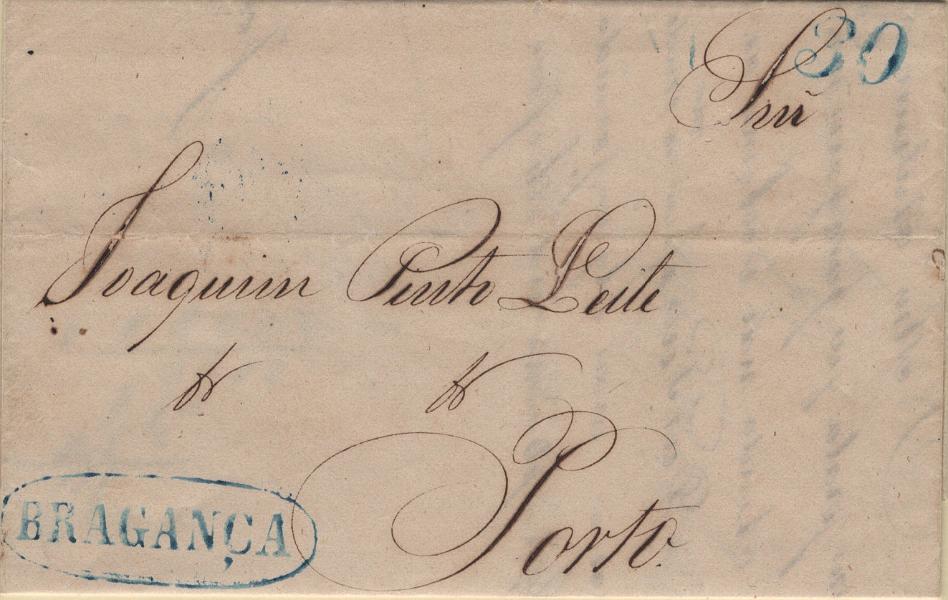 30
Snr̃
Joaquim Pinto Leite
Porto
BRAGANÇA